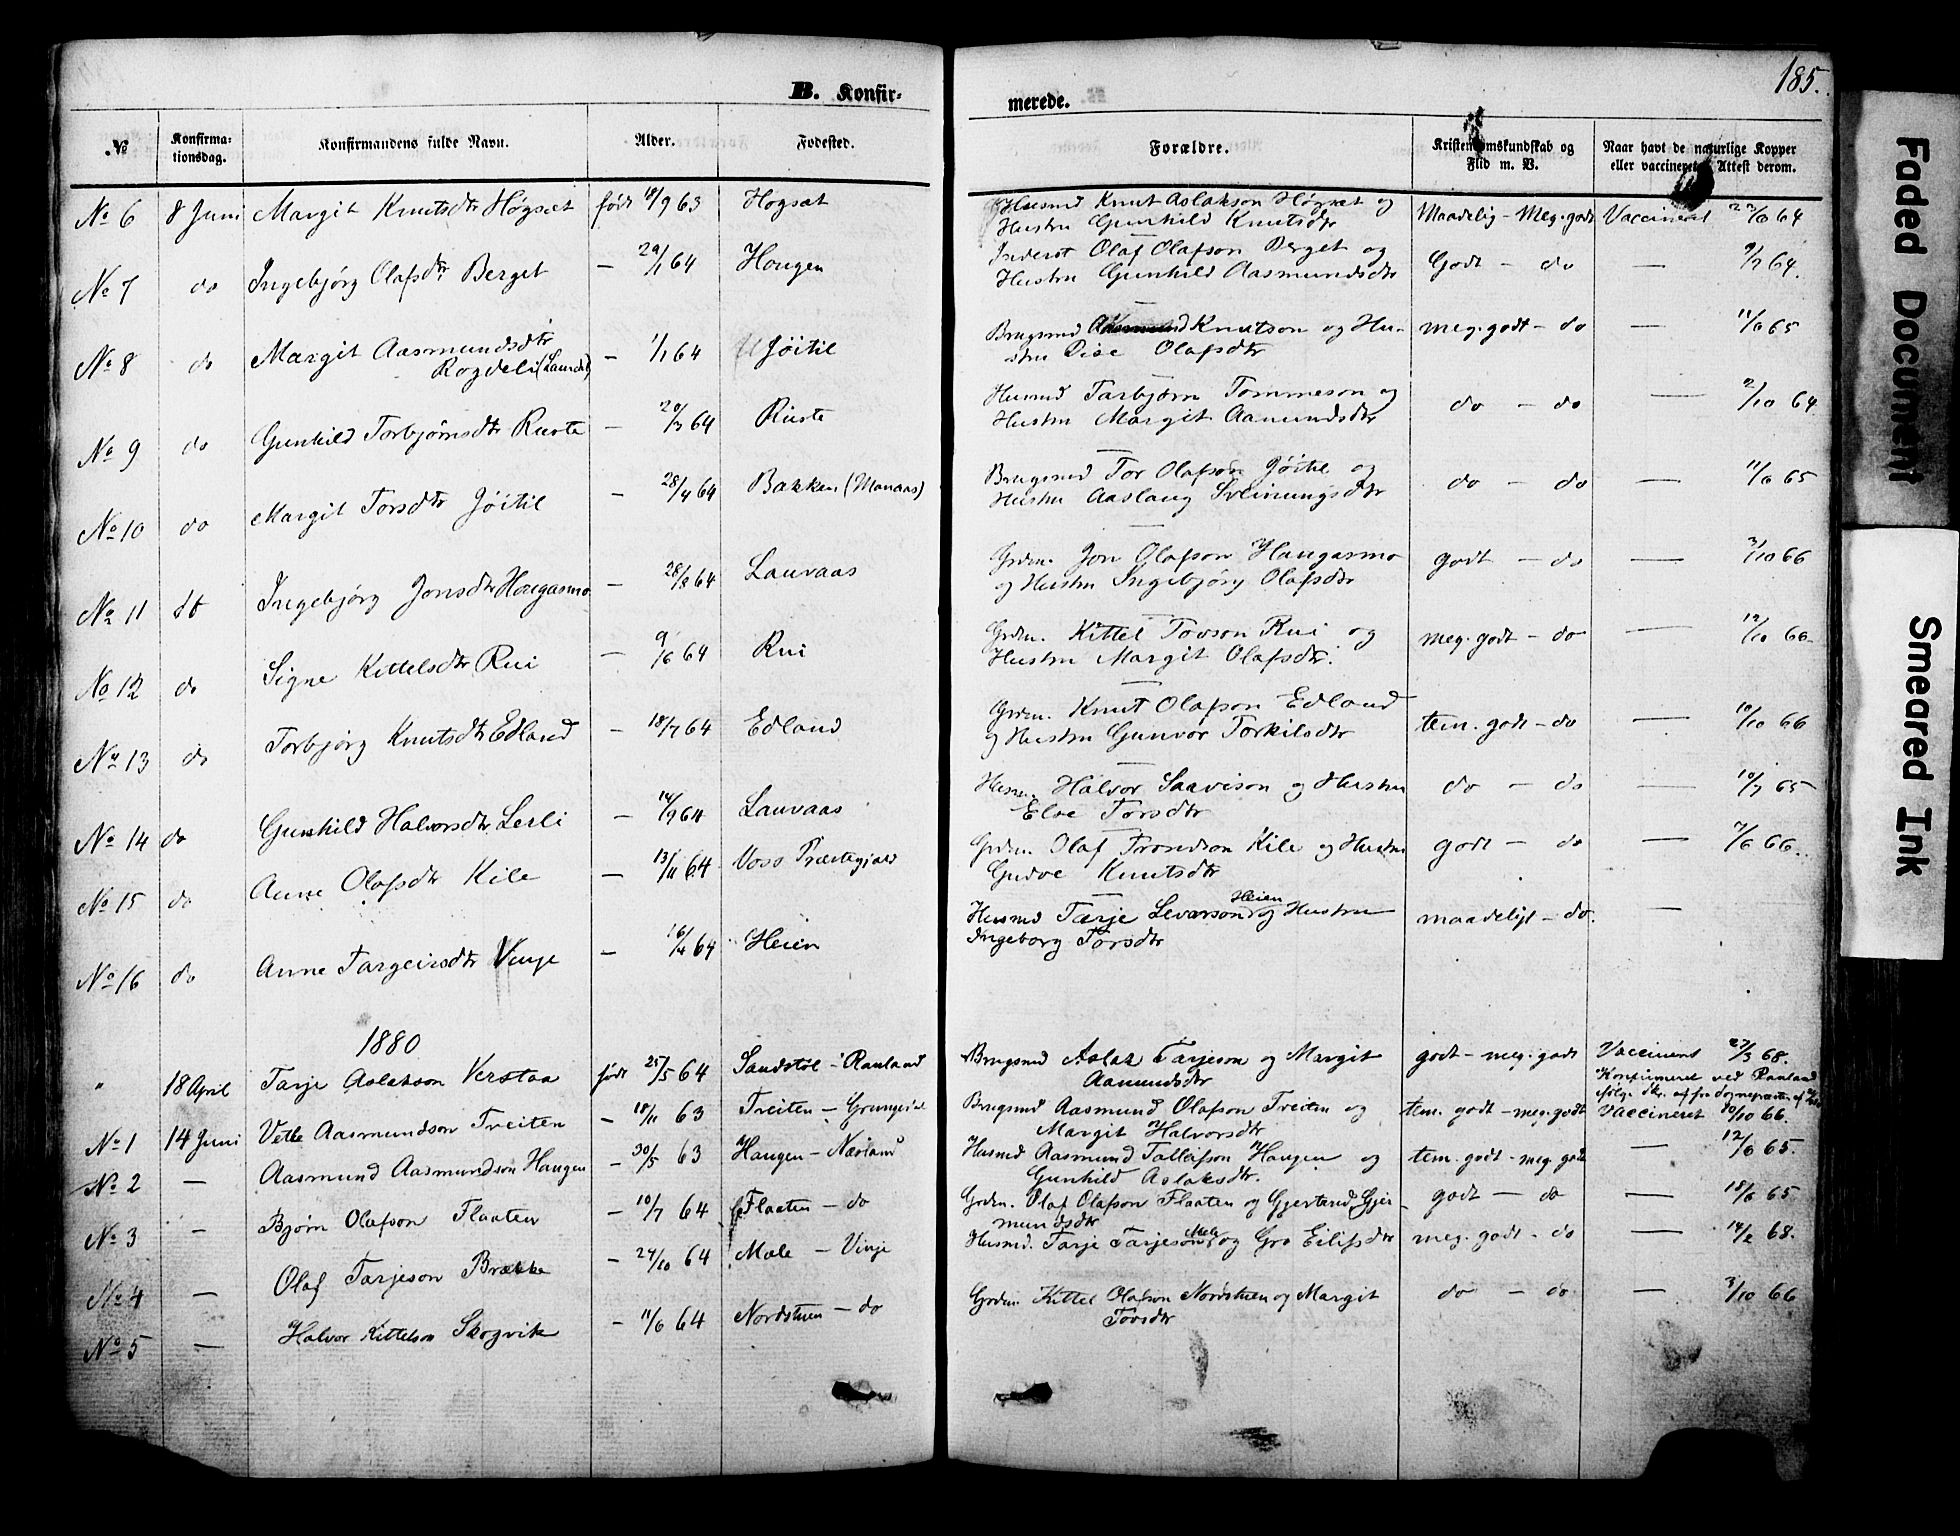 B. Konfir-
merede.
185.
No
Konfirma-
tionsdag.
Konfirmandens fulde Navn.
Alder.
Fødested.
Forældre.
Kristendomskundskab og
Flid m. V.
Naar havt de naturlige Kopper
eller vaccineret. Attest derom.
No 6 8 Juni Margit Knutsdtr Høgsæt født 18/9 63 Høgsæt Husmd Knut Aslakson Høgsæt og Maadelig - Meg. godt Vaccineret 22/6 64
Hustru Gunhild Knutsdtr
No 7 do Ingebjørg Olafsdtr Berget — 29/1 64 Hougen Inderst Olaf Olafson Berget og Godt - do — 9/7 64.
Hustru Gunhild Aasmundsdtr
No 8 do Margit Aasmundsdtr — 1/1 64 Jøitil Brugsmd Aasmund Knutson og Hu- meg. godt - do — 11/6 65
Rogdeli (Laundal) stru Dise Olafsdtr
No 9 do Gunhild Torbjørnsdtr Ruste — 20/3 64 Ruste Husmd Tarbjørn Tommeson og do - do — 2/10 64
Hustru Margit Aamundsdtr
No 10 do Margit Torsdtr Jøitil — 28/4 64 Bakken (Manaas) Brugsmd Tor Olafson Jøitil og do - do — 11/6 65
Hustru Aaslaug Sveinungsdtr
No 11 dt Ingebjørg Jonsdtr Hougasmo — 28/8 64 Lauvaas Grdm. Jon Olafson Haugasmo godt - do — 3/10 66
og Hustru Ingebjørg Olafsdtr
No 12 do Signe Kittelsdtr Rui — 9/6 64 Rui Grdm. Kittel Tovson Rui og meg. godt - do — 12/10 66
Hustru Margit Olafsdtr.
No 13 do Torbjørg Knutsdtr Edland — 18/7 64 Edland Grdm. Knut Olafson Edland tem. godt - do — 10/10 66
og Hustru Gunvor Torkilsdtr
No 14 do Gunhild Halvorsdtr Lerli — 14/9 64 Lauvaas Husm. Halvor Saavison og Hustru do - do — 10/7 65
Elve Torsdtr
No 15 do Anne Olafsdtr Kile — 13/11 64 Voss Præstegjæld Grdm. Olaf Trondson Kile og Hustru godt - do — 7/6 66.
Gudve Knutsdtr
No 16 do Anne Targeirsdtr Vinje — 16/4 64 Heien Husmd Tarje Levarson Heien og Hustru maadeligt - do. —
Ingeborg Torsdtr
1880
" 18 April Tarje Aslakson Verstaa født 25/5 64 Sandstøl - Rauland Brugsmd Aslak Tarjeson og Margit godt - meg. godt Vaccineret 27/3 68.
Aamundsdtr Konfirmeret ved Rauland
ifølge Skr. af fra Sognepræsten af
No 1 14 Juni Vetle Aasmundson Treiten — 18/11 63 Treiten - Grungedal Brugsmd Aasmund Olafson Treiten og tem. godt - meg. godt Vaccineret 10/10 66.
Margit Halvorsdtr
No 2 — Aasmund Aasmundson Haugen — 30/5 63 Haugen - Næsland Husmd Aasmund Tallefson Haugen og tem. godt - meg. godt — 12/6 65.
Gunhild Aslaksdtr.
No 3 — Bjørn Olafson Flaaten — 10/7 64 Flaaten - do Grdm. Olaf Olafson Flaaten og Gjertrud Gjer- godt - do — 18/6 65
mundsdtr
No 4 — Olaf Tarjeson Brække — 24/10 64 Mæle - Vinje Husmd. Tarje Tarjeson Mæle og Gro Eilifsdtr meg. godt - do — 14/2 68.
No 5 — Halvor Kittelson Skogvik — 11/6 64 Nordstuen - do Grdm. Kittel Olafson Nordstuen og Margit do - do — 3/10 66
Tovsdtr
Faded Document
Smeared Ink